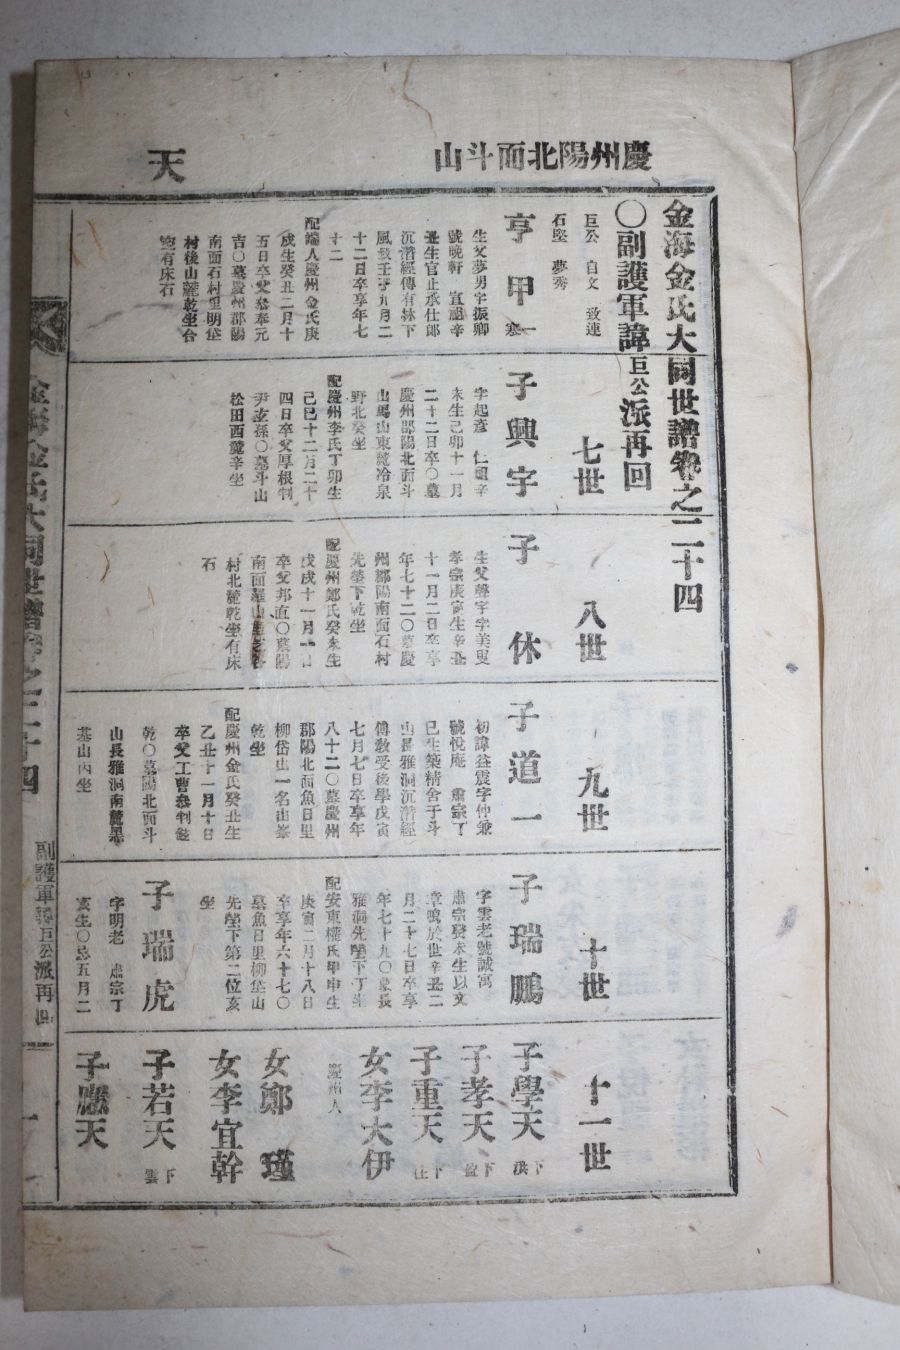 慶州陽北面斗山
天
金海金氏大同世譜卷之二十四
〇副護軍諱巨公派再回
七世
八世
九世
十世
十一世
巨公 自文 致連
石堅 夢秀
亨甲
生父夢男字振卿
號晩軒 宣祖辛
丑生官止承仕郎
沉潛經傳有林下
風致壬子九月二
十二日卒享年七
十二
配端人慶州金氏庚
戌生癸丑二月十
五日卒父參奉元
吉〇墓慶州郡陽
南面石村里明垈
村後山麓乾坐合
窆有床石
子興宇
字起彦 仁祖辛
未生己卯十一月
二十二日卒〇墓
慶州郡陽北面斗
山馬山東麓冷泉
野北癸坐
配慶州李氏丁卯生
己巳十二月二十
四日卒父厚根判
尹玄孫〇墓斗山
松田西麓辛坐
子休
生父聲宇字美叟
孝宗庚寅生辛丑
十一月二日卒享
年七十二〇墓慶
州郡陽南面石村
先塋下乾坐
配慶州鄭氏癸未生
戊戌十一月一日
卒父邦直〇墓陽
南面羅山里
村北麓乾坐有床
石
子道一
初諱益震字仲兼
號悅庵 肅宗丁
巳生築精舍于斗
山長雅洞沉潛經
傳敎受後學戊寅
七月七日卒享年
八十二〇墓慶州
郡陽北面魚日里
柳岱山一名由峯
乾坐
配慶州金氏癸丑生
乙丑十一月十日
卒父工曹參判益
乾〇墓陽北面斗
山長雅洞南麓黑
基山丙坐
子瑞鵬
字雲老號誠寓
肅宗癸未生以文
章鳴於世辛丑二
月二十七日卒享
年七十九〇墓長
雅洞先塋下丁坐
配安東權氏甲申生
庚寅二月十八日
卒享年六十七〇
墓魚日里柳垈山
先塋下第二位亥
坐
子瑞虎
字明老 肅宗丁
亥生〇忌五月二
子學天 下
子孝天 下
子重天 下
女李大伊
慶州人
女鄭瑾
女李宜幹
子若天 下雲
子鵬天
金海金氏大同世譜卷之二十四
副護軍諱巨公派再回
一